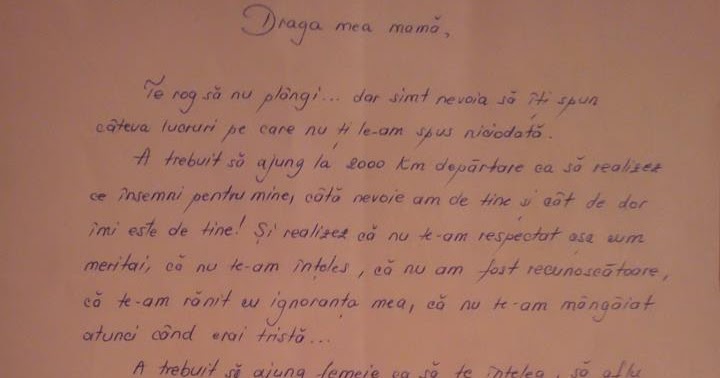 Draga mea mamă,
Te rog să nu plângi... dar simt nevoia să îți spun
câteva lucruri pe care nu ți le-am spus niciodată.
A trebuit să ajung la 2000 km depărtare ca să realizez
ce însemni pentru mine, câtă nevoie am de tine și cât de dor
îmi este de tine! Și realizez că nu te-am respectat așa cum
meritai, că nu te-am înțeles, că nu am fost recunoscătoare,
că te-am rănit cu ignoranța mea, că nu te-am mângâiat
atunci când erai tristă...
A trebuit să ajung femeie ca să te înțeleg, să aflu